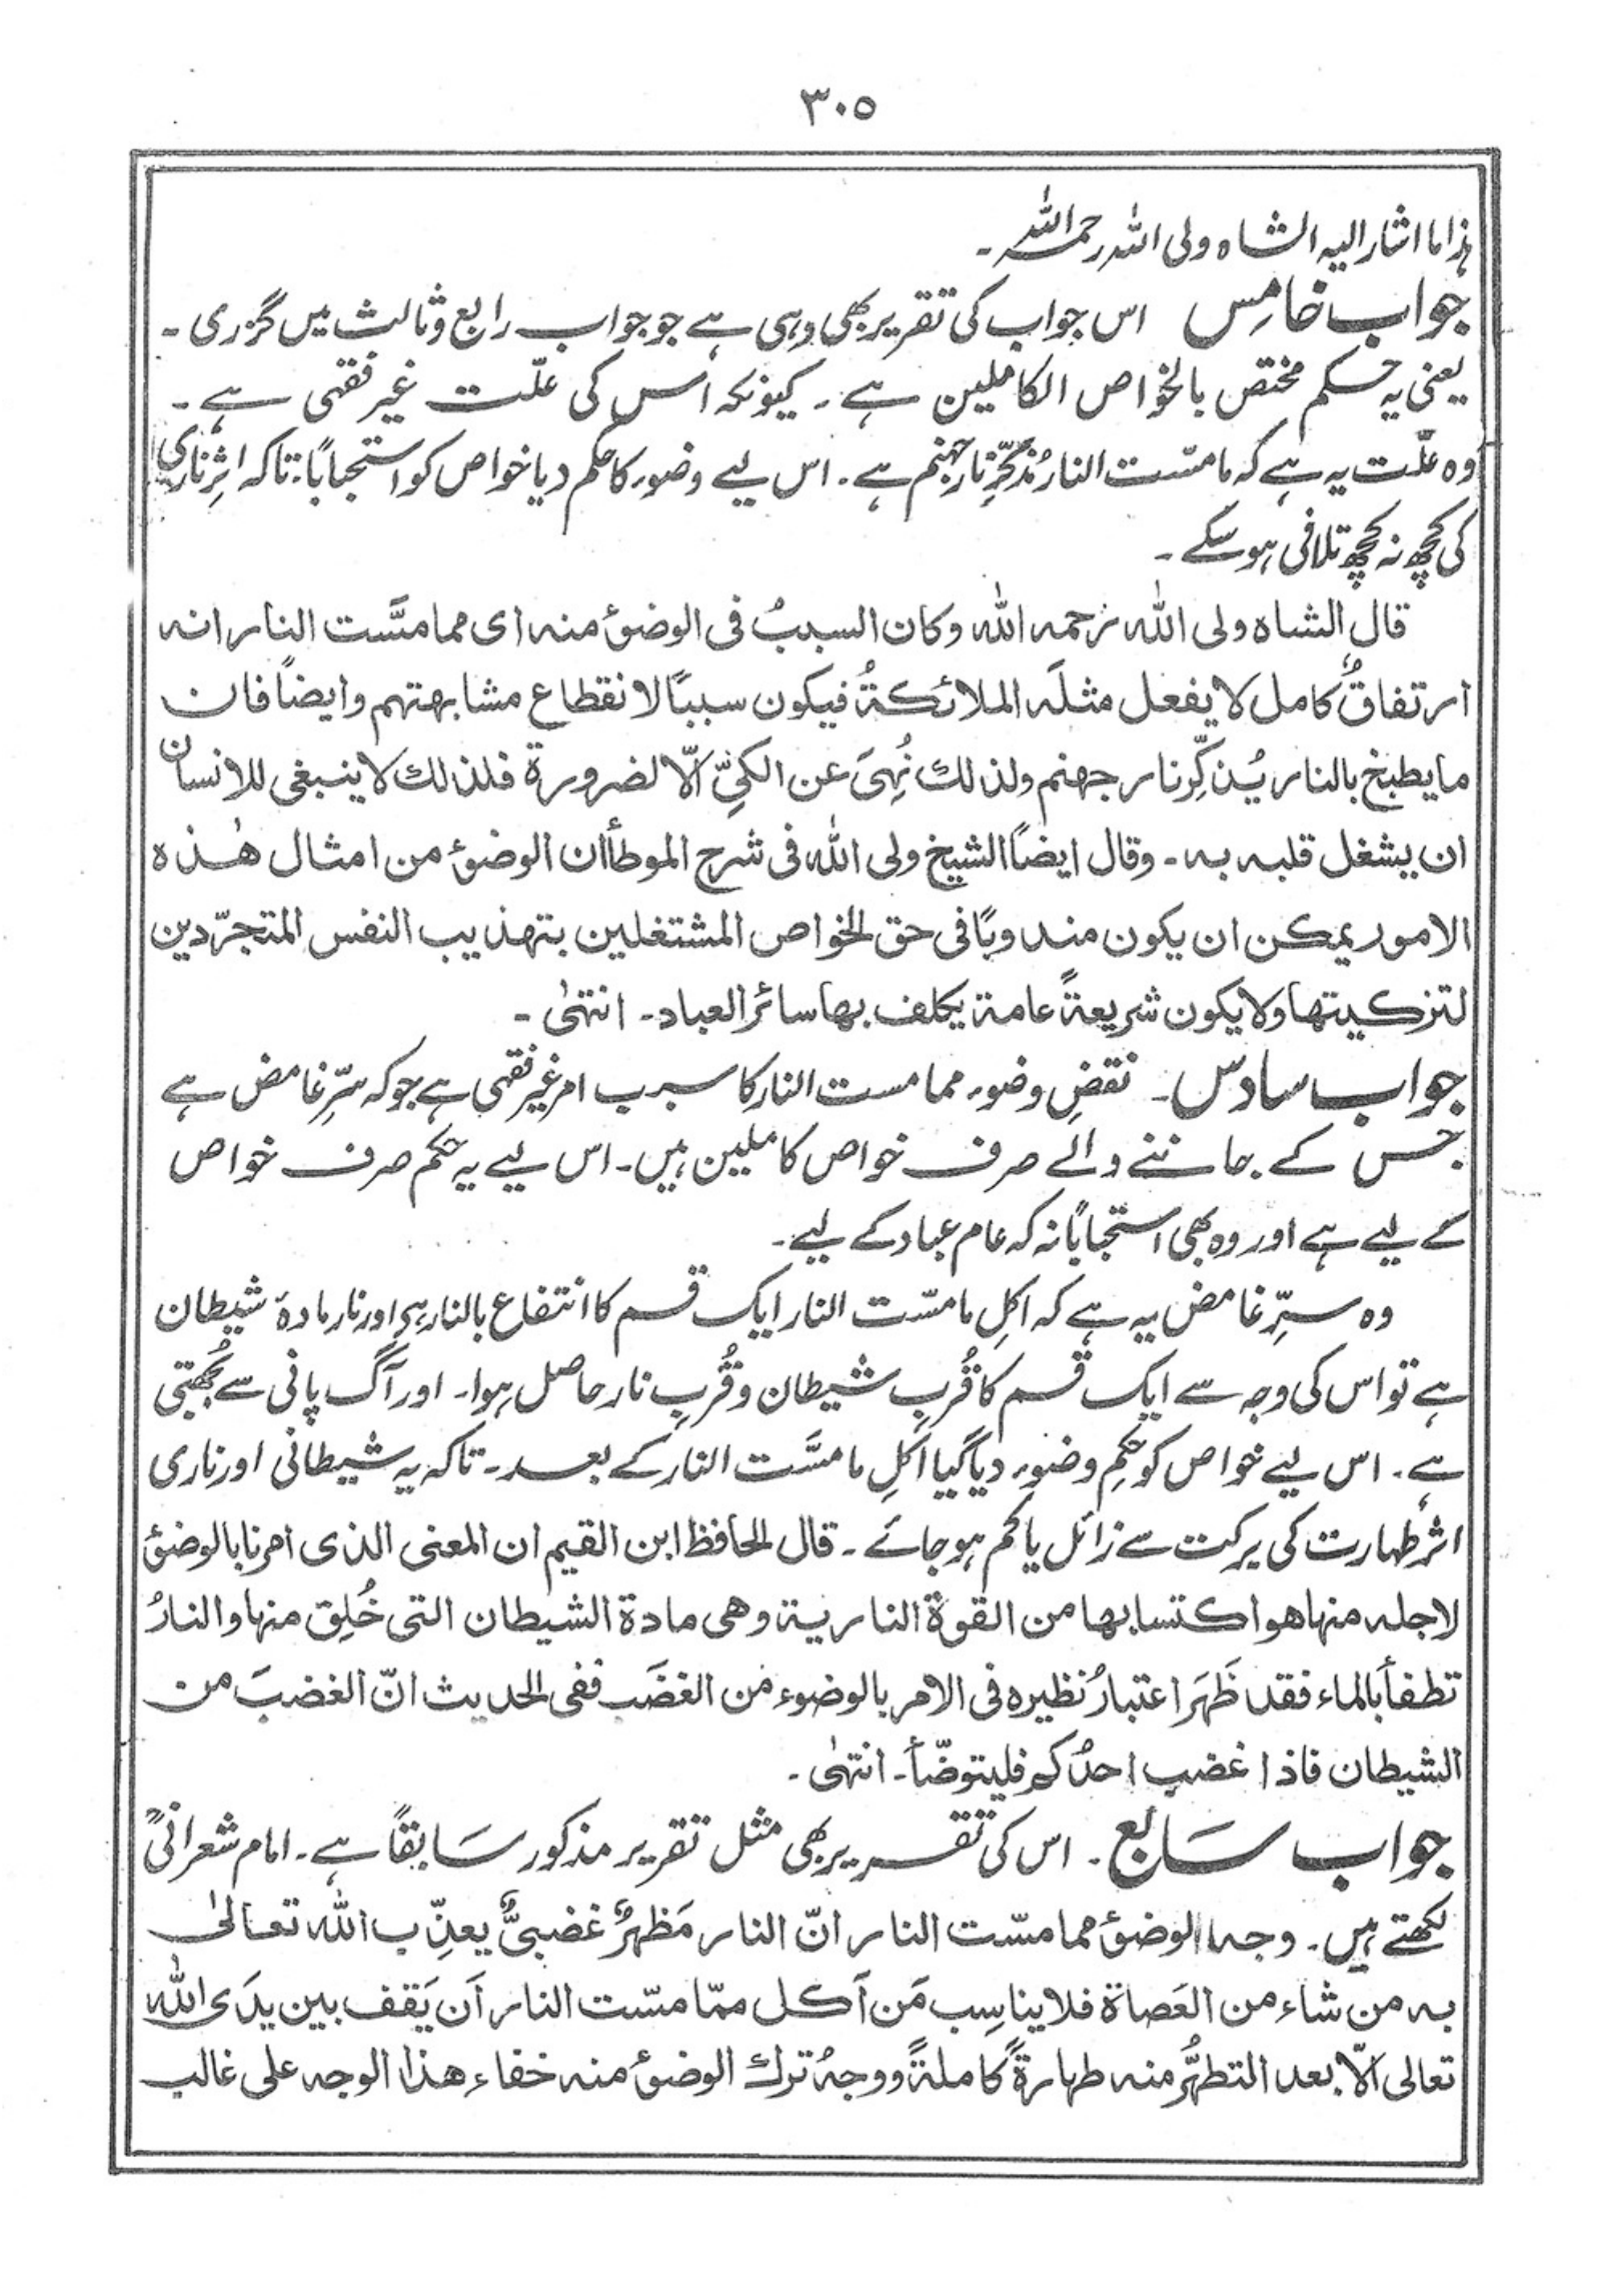 ٣٠٥
ہٰذا ما اشار الیہ الشاہ ولی اللہ رحمہ اللہ ۔
جواب خامِس اس جواب کی تقریر بھی وہی ہے جو جواب رابع و ثالث میں گزری ۔
یعنی یہ حکم مختص بالخواص الکاملین ہے ۔ کیونکہ اس کی علّت غیر فقہی ہے ۔
وہ علّت یہ ہے کہ ما مسّت النار مُذکِّرِ نارِ جہنم ہے ۔ اس لیے وضوء کا حکم دیا خواص کو استحباباً ۔ تاکہ اثرِ ناری
کی کچھ نہ کچھ تلافی ہو سکے ۔
قال الشاہ ولی اللہ رحمہ اللہ وکان السببُ فی الوضوٴ منہ ای مما مسَّت النار انہ
ارتفاقٌ کامل لا یفعل مثلَہ الملائکةُ فیکون سببًا لانقطاع مشابہتہم وایضًا فان
ما یطبخ بالنار یُذکِّر نار جہنم ولذلك نُہِیَ عن الکیِّ الّا لضرورة فلذلك لا ینبغی للانسان
ان یشغل قلبہ بہ ۔ وقال ایضًا الشیخ ولی اللہ فی شرح الموطأ ان الوضوٴ من امثال ھٰذہ
الامور یمکن ان یکون مندوبًا فی حق الخواص المشتغلین بتھذیب النفس المتجرّدین
لتزکیتھا ولا یکون شریعةً عامة یکلف بھا سائر العباد ۔ انتھٰی ۔
جواب سادس ۔ نقضِ وضوء مما مست النار کا سبب امر غیر فقہی ہے جو کہ سِرِّ غامض ہے
جس کے جاننے والے صرف خواص کاملین ہیں ۔ اس لیے یہ حکم صرف خواص
کے لیے ہے اور وہ بھی استحباباً نہ کہ عام عباد کے لیے ۔
وہ سِرِّ غامض یہ ہے کہ اکلِ ما مسّت النار ایک قسم کا انتفاع بالنار ہے اور نار مادۂ شیطان
ہے تو اس کی وجہ سے ایک قسم کا قُربِ شیطان و قُربِ نار حاصل ہوا ۔ اور آگ پانی سے بُجھتی
ہے ۔ اس لیے خواص کو حکمِ وضوء دیا گیا اکلِ ما مسَّت النار کے بعد ۔ تاکہ یہ شیطانی اور ناری
اثر طہارت کی برکت سے زائل یا کم ہو جائے ۔ قال الحافظ ابن القیم ان المعنی الذی امرنا بالوضوٴ
لاجلہ منھا ھو اکتسابھا من القوة الناریة وھی مادة الشیطان التی خُلِقَ منھا والنارُ
تطفأ بالماء فقد ظَہَر اعتبارُ نظیرہ فی الامر بالوضوء من الغضَب ففی الحدیث انّ الغضبَ من
الشیطان فاذا غضب احدُکم فلیتوضّأ ۔ انتھٰی ۔
جواب سَابع ۔ اس کی تقریر بھی مثل تقریر مذکور سَابقاً ہے ۔ امام شعرانیؒ
لکھتے ہیں ۔ وجہ الوضوٴ مما مسّت النار انّ النار مَظھرٌ غضبیٌّ یعذِّب اللہ تعالٰی
بہ من شاء من العَصاة فلا یناسِب مَن اَکل ممّا مسّت النار اَن یَقف بین یدَی اللہ
تعالی الّا بعد التطھُّر منہ طہارةً کاملةً ووجہُ ترك الوضوٴ منہ خفاء ھذا الوجہ علی غالب